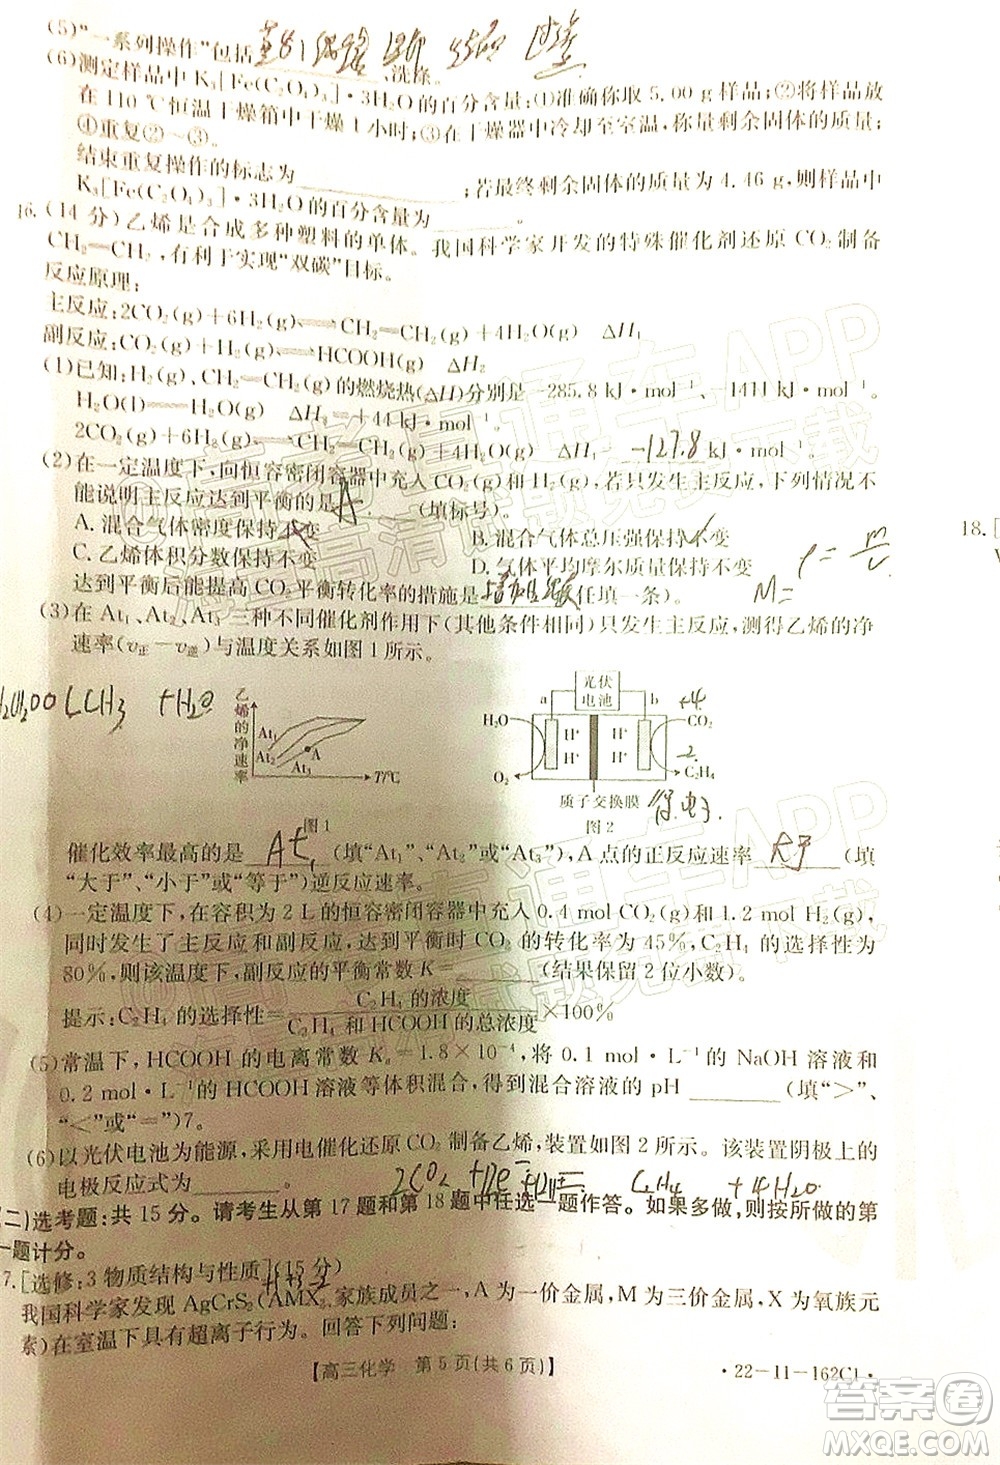 (5)“一系列操作”包括 过滤 、洗涤。
(6)测定样品中 K₃[Fe(C₂O₄)₃]·3H₂O 的百分含量:①准确称取 5.00 g 样品;②将样品放
在 110 ℃恒温干燥箱中干燥 1 小时;③在干燥器中冷却至室温,称量剩余固体的质量;
④重复②～③。
结束重复操作的标志为____________;若最终剩余固体的质量为 4.46 g,则样品中
K₃[Fe(C₂O₄)₃]·3H₂O 的百分含量为________。
16.(14 分)乙烯是合成多种塑料的单体。我国科学家开发的特殊催化剂还原 CO₂ 制备
CH₂=CH₂,有利于实现“双碳”目标。
反应原理:
主反应:2CO₂(g)+6H₂(g)⇌CH₂=CH₂(g)+4H₂O(g) ΔH₁
副反应:CO₂(g)+H₂(g)⇌HCOOH(g) ΔH₂
(1)已知:H₂(g)、CH₂=CH₂(g)的燃烧热(ΔH)分别是-285.8 kJ·mol⁻¹、-1411 kJ·mol⁻¹。
H₂O(l)=H₂O(g) ΔH₃=+44 kJ·mol⁻¹
2CO₂(g)+6H₂(g)⇌CH₂=CH₂(g)+4H₂O(g) ΔH₁= -127.8 kJ·mol⁻¹。
(2)在一定温度下,向恒容密闭容器中充入 CO₂(g)和 H₂(g),若只发生主反应,下列情况不
能说明主反应达到平衡的是 A (填标号)。
A.混合气体密度保持不变 B.混合气体总压强保持不变
C.乙烯体积分数保持不变 D.气体平均摩尔质量保持不变
ρ=m/V
M=
达到平衡后能提高 CO₂ 平衡转化率的措施是 (任填一条)。
(3)在 At₁、At₂、At₃ 三种不同催化剂作用下(其他条件相同)只发生主反应,测得乙烯的净
速率(v正-v逆)与温度关系如图 1 所示。
CH₃ +H₂O
乙烯的净速率 At₁ At₂ At₃ A T/℃
图 1
光伏电池 a b
H₂O O₂ H⁺ H⁺ H⁺ H⁺ CO₂ C₂H₄
+4
-2
质子交换膜 得电子
图 2
催化效率最高的是 At₁ (填“At₁”、“At₂”或“At₃”),A 点的正反应速率 大于 (填
“大于”、“小于”或“等于”)逆反应速率。
(4)一定温度下,在容积为 2 L 的恒容密闭容器中充入 0.4 mol CO₂(g)和 1.2 mol H₂(g),
同时发生了主反应和副反应,达到平衡时 CO₂ 的转化率为 45%,C₂H₄ 的选择性为
80%,则该温度下,副反应的平衡常数 K=________(结果保留 2 位小数)。
提示:C₂H₄ 的选择性=C₂H₄ 的浓度/C₂H₄ 和 HCOOH 的总浓度×100%
(5)常温下,HCOOH 的电离常数 Kₐ=1.8×10⁻⁴,将 0.1 mol·L⁻¹的 NaOH 溶液和
0.2 mol·L⁻¹HCOOH 溶液等体积混合,得到混合溶液的 pH________(填“>”、
“<”或“=”)7。
(6)以光伏电池为能源,采用电催化还原 CO₂ 制备乙烯,装置如图 2 所示。该装置阴极上的
电极反应式为________。 2CO₂ +12e⁻ +12H⁺= C₂H₄ +4H₂O
(二)选考题:共 15 分。请考生从第 17 题和第 18 题中任选一题作答。如果多做,则按所做的第
一题计分。
17.[选修:3 物质结构与性质](15 分)
我国科学家发现 AgCrS₂(AMX₂ 家族成员之一,A 为一价金属,M 为三价金属,X 为氧族元
素)在室温下具有超离子行为。回答下列问题:
【高三化学 第 5 页(共 6 页)】 ·22-11-162C1·
18.[
答案圈
MXQE.COM